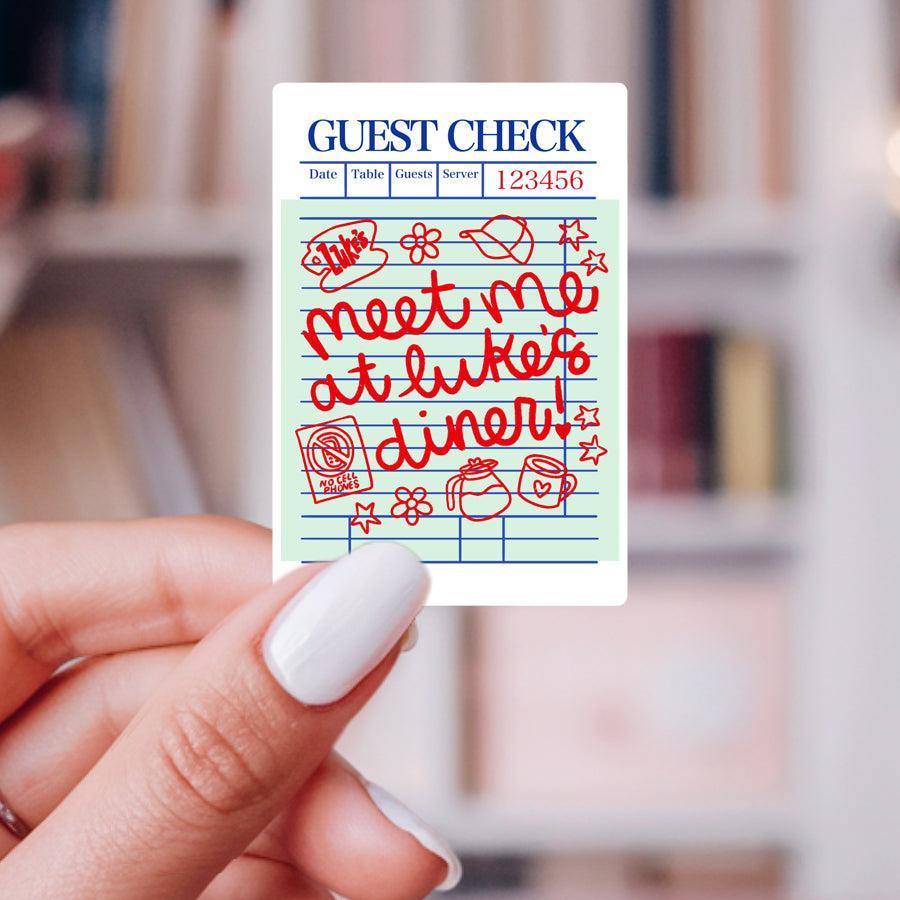 GUEST CHECK
Date Table Guests Server 123456
LUKE'S
meet me
at luke's
diner!
NO CELL
PHONES